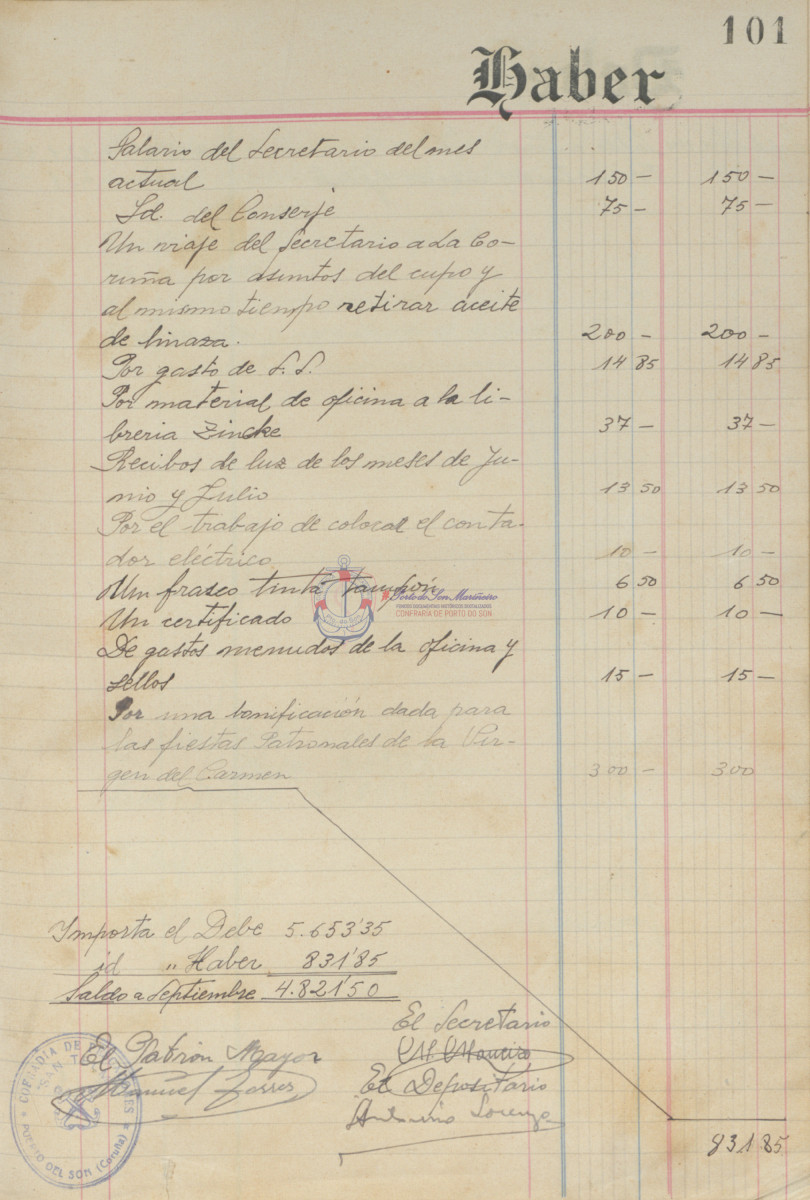 101
Haber
Salario del Secretario del mes
actual 150 — 150 —
Id. del Conserje 75 — 75 —
Un viaje del Secretario a La Co-
ruña por asuntos del cupo y
al mismo tiempo retirar aceite
de linaza. 200 — 200 —
Por gasto de S.S. 14 85 14 85
Por material de oficina a la li-
breria Zincke 37 — 37 —
Recibos de luz de los meses de Ju-
nio y Julio 13 50 13 50
Por el trabajo de colocar el conta-
dor eléctrico 10 — 10 —
Un frasco tinta tampón 6 50 6 50
Porto do Son Mariñeiro
FONDOS DOCUMENTAIS HISTÓRICOS DIXITALIZADOS
CONFRARÍA DE PORTO DO SON
Un certificado 10 — 10 —
De gastos menudos de la oficina y
sellos 15 — 15 —
Por una bonificación dada para
las fiestas Patronales de la Vir-
gen del Carmen 300 — 300
Importa el Debe 5.653'35
id " Haber 831'85
Saldo a Septiembre 4.821'50
El Secretario
El Patrón Mayor
Manuel Torres
El Depositario
Antonio Lorenzo
COFRADIA DE
PUERTO DEL SON (Coruña)
831 85